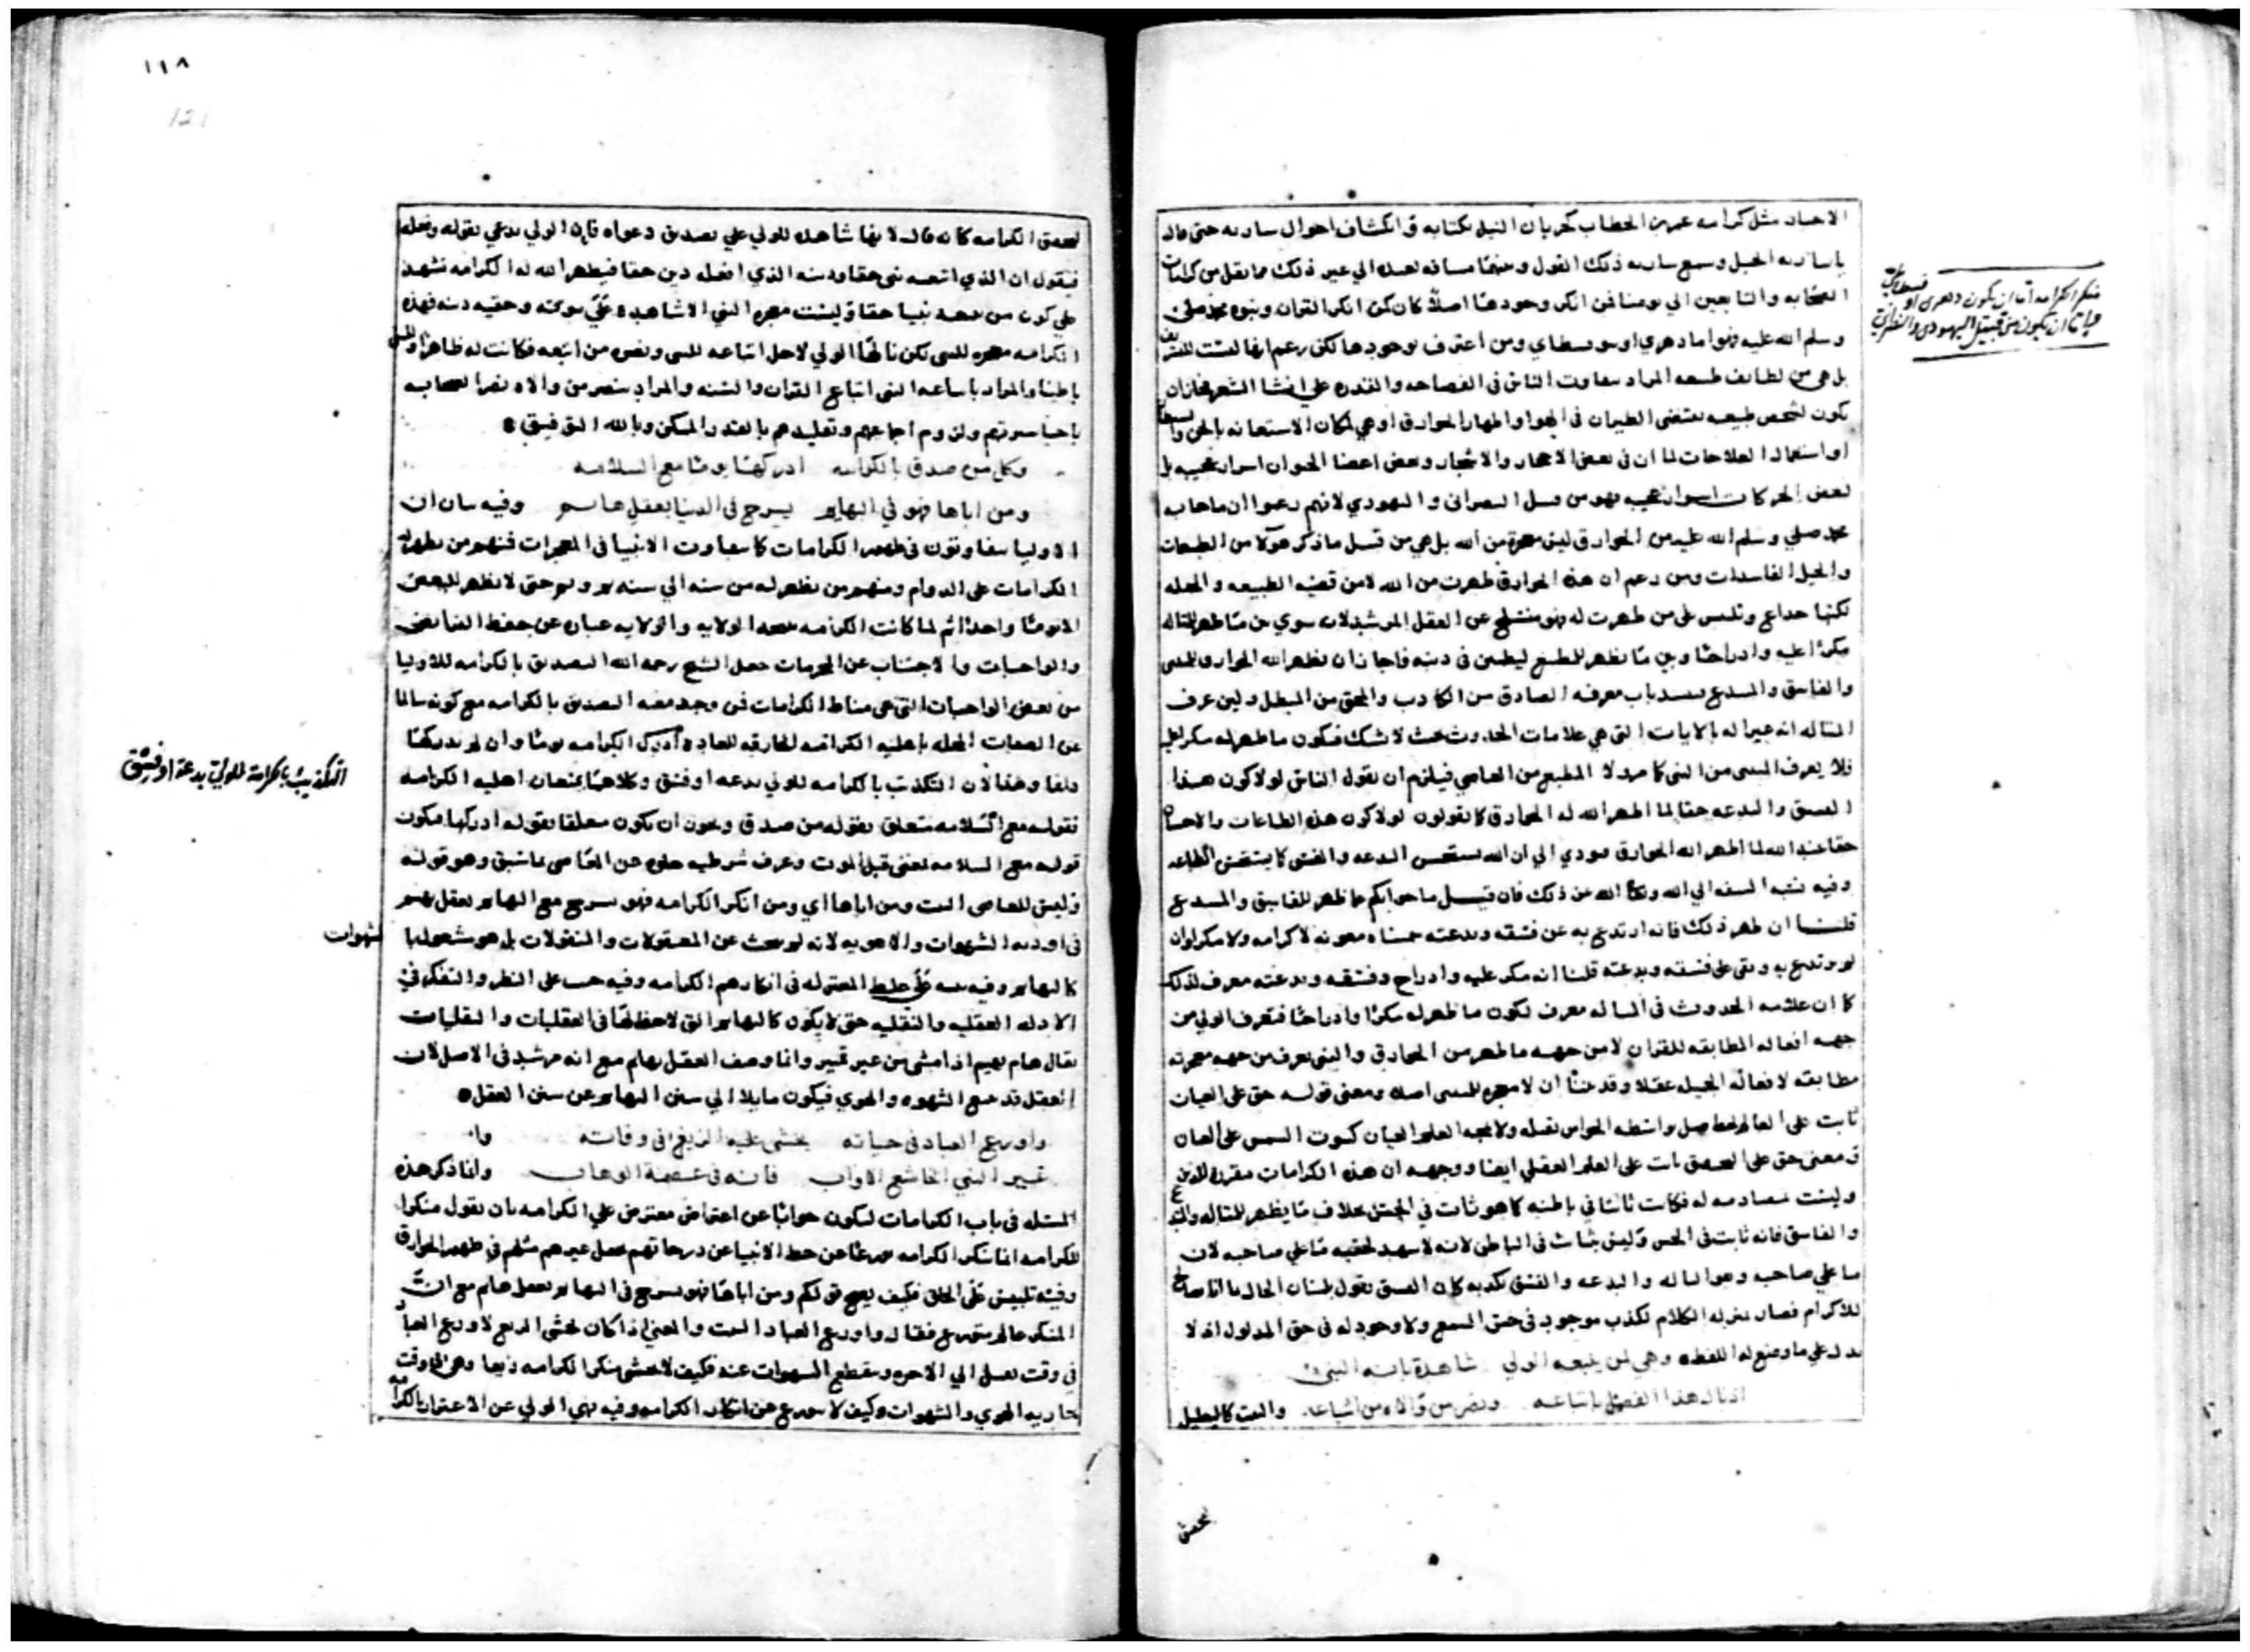 الاحاد مثل كرامه عمر بن الخطاب كجريان النيل بكتابه وانكشاف احوال ساريه حتى قال
يا ساريه الجبل وسمع ساريه ذلك القول وبينهما مسافه بعيده الي غير ذلك مما نقل من كرامات
الصحابه والتابعين الي يومنا فمن انكر وجودها اصلا كان كمن انكر القران ونبوه محمد صلى
وسلم الله عليه فهو اما دهري او سوفسطاي ومن اعترف بوجودها لكن زعم انها ليست
بل هي من لطايف طبيعه المراد تفاوت الناس في الفصاحه والقدره علي انشا الشعر فجاز ان
يكون لشخص طبيعه تقتضي الطيران في الهوا واظهار الخوارق او هي لمكان الاستعانه بالجن
او استعمال العلاجات لما ان في بعض الاحجار والاشجار وبعض اعضا الحيوان اسرار عجيبه بل
لبعض الحركات اسرار عجيبه فهو من قبيل النصراني واليهودي لانهم زعموا ان ما جا به
محمد صلي وسلم الله عليه من الخوارق ليس معجزة من الله بل هي من قبيل ما ذكر هولا من الطبيعات
والحيل الفاسدات ومن زعم ان هذه الخوارق ظهرت من الله لا من قضيه الطبيعه والحيله
لكنها خداع وتلبيس على من ظهرت له فهو منسلخ عن العقل المرشد لانه سوي بين ما ظهر للمتاله
مكرا عليه وادراجا وبين ما يظهر للمطيع ليطمئن في دينه فاجاز ان يظهر الله الخوارق للمتنبي
والفاسق والمبتدع فيسد باب معرفه الصادق من الكاذب والمحق من المبطل ولئن عرف
المتاله انه غير اله بالايات التي هي علامات الحدوث بحيث لا شك فيكون ما ظهر له مكرا عليه
فلا يعرف المتنبي من النبي كما مر ولا المطيع من العاصي فيلزم ان يقول الناس لولا كون هذا
الفسق والبدعه حقا لما اظهر الله له الخوارق كما يقولون لولا كون هذه الطاعات والاحسان
حقا عند الله لما اظهر الله الخوارق فيودي الي ان الله يستحسن البدعه والفسق كما يستحسن الطاعه
وفيه نسبه السفه الي الله وتعالى الله عن ذلك فان قيل ما جوابكم عما ظهر للفاسق والمبتدع
قلنا ان ظهر ذلك فانه ارتدع به عن فسقه وبدعته سميناه معونه لا كرامه ولا مكرا وان
لم يرتدع به وبقي على فسقه وبدعته قلنا انه مكر عليه وادراج وفسقه وبدعته معرف لذلك
كما ان علامه الحدوث في المتاله معرف لكون ما ظهر له مكرا وادراجا فتعرف الولي من
جهه افعاله المطابقه للقران لا من جهه ما ظهر من الخوارق والنبي يعرف من جهه معجزته
مطابقه لافعاله الجميله عقلا وقد بينا ان لا معجزه للمتنبي اصلا ومعنى قوله حق على العيان
ومعنى حق على التحقيق ثابت على العلم العقلي ايضا ووجهه ان هذه الكرامات مقرره للدين
وليست مصادمه له فكانت ثابتا في باطنه كما هو ثابت في الحس بخلاف ما يظهر للمتاله
والفاسق فانه ثابت في الحس وليس بثابت في الباطن لانه لا يشهد لحقيه ما علي صاحبه لان
ما علي صاحبه وهو التاله والبدعه والفسق يكذبه كان الفسق يقول بلسان الحال ما انا صالح
للاكرام فصار بمنزله الكلام تكذب موجود في حق السمع ولا وجود له في حق المدلول اذ لا
يدل علي ما وضع له اللفظ وهي لمن يتبعه الولي شاهدة بانه النبي
اذ نال هذا الفضل باتباعه ونصر من والاه من اشياعه والبيت كالتعليل
لتحقيق الكرامه كانه قال لانها شاهده للولي علي تصديق دعواه فان الولي يدعي بقوله وفعله
فيقول ان الذي اتبعه نبي حقا ودينه الذي افعله دين حقا فيظهر الله له الكرامه تشهد
علي كون من يتبعه نبيا حقا وليست معجزه النبي الا شاهده علي نبوته وحقيه دينه فهذه
الكرامه معجزه للنبي لكن نالها الولي لاجل اتباعه للنبي ونصر من اتبعه فكانت له ظاهرا وللنبي
باطنا والمراد باتباعه النبي اتباع القران والسنه والمراد بنصر من والاه نصر الصحابه
باحيا سيرتهم ولزوم اجماعهم وتقليدهم بالقدر الممكن وبالله التوفيق
وكل من صدق بالكرامه ادركها يوما مع السلامه
ومن اباها فهو في البهايم يسرح في الدنيا بعقل هايم وفيه بيان ان
الاوليا يتفاوتون في ظهور الكرامات كما يتفاوت الانبيا في المعجزات فمنهم من يظهر له
الكرامات على الدوام ومنهم من يظهر له من سنه الي سنه ثم وثم حتى لا تظهر للبعض
الا يوما واحدا ثم لما كانت الكرامه نتيجه الولايه والولايه عباره عن حفظ الفرايض
والواجبات والاجتناب عن المحرمات جعل الشيخ رحمه الله التصديق بالكرامه للاوليا
من بعض الواجبات التي هي مناط الكرامات فمن وجد معه التصديق بالكرامه مع كونه سالما
عن الصفات المخله باهليه الكرامه الخارقه للعاده ادرك الكرامه يوما وان لم يدركها
دايما وهذا لان التكذيب بالكرامه للولي بدعه او فسق وكلاهما يمنعان اهليه الكرامه
فقوله مع السلامه متعلق بقوله من صدق ويجوز ان يكون معلقا بقوله ادركها فيكون
قوله مع السلامه يعني قبل الموت وعرف شرطيه خلوه عن المعاصي بما سبق وهو قوله
وليس للعاصي البيت ومن اباها اي ومن انكر الكرامه فهو يسرح مع البهايم بعقل بهيم
في اوديه الشهوات والاهويه لانه لم يبحث عن المعقولات والمنقولات بل هو مشغول بها
كالبهايم وفيه تنبيه على غلط المعتزله في انكارهم الكرامه وفيه حث على النظر والتفكر في
الادله العقليه والنقليه حتى لا يكون كالبهايم التي لا حظ لها في العقليات والنقليات
يقال هام يهيم اذا مشى من غير تمييز وانما وصف العقل بهايم مع انه مرشد في الاصل لان
العقل قد يتبع الشهوه والهوي فيكون مايلا الي سنن البهايم عن سنن العقل
واورع العباد في حياته يخشى عليه الزيغ في وفاته
غير النبي الخاشع الاواب فانه في عصمة الوهاب وانما ذكر هذه
المسئله في باب الكرامات ليكون جوابا عن اعتراض معترض علي الكرامه بان يقول منكر
للكرامه انما ننكر الكرامه تورعا عن حط الانبيا عن درجاتهم بجعل غيرهم مثلهم في ظهور الخوارق
وفيه تلبيس على الخلق فكيف يصح قولكم ومن اباها فهو يسرح في البهايم بعقل هايم مع ان
المنكر عالم متورع فقال واورع العباد البيت والمعني اذا كان يخشى الزيغ لاورع العباد
في وقت يصل الي الاخره وينقطع الشهوات عنه فكيف لا يخشى منكر الكرامه زيغا وهو في وقت
محاربه الهوي والشهوات وكيف لا يتورع عن انكار الكرامه وفيه نهي الولي عن الاغترار بالكرامه
منكر الكرامه اما ان يكون دهرى او سوفسطاي
واما ان يكون من قبيل اليهودي والنصراني
التكذيب بالكرامة للولي بدعة او فسق
شهوات
١١٨
121